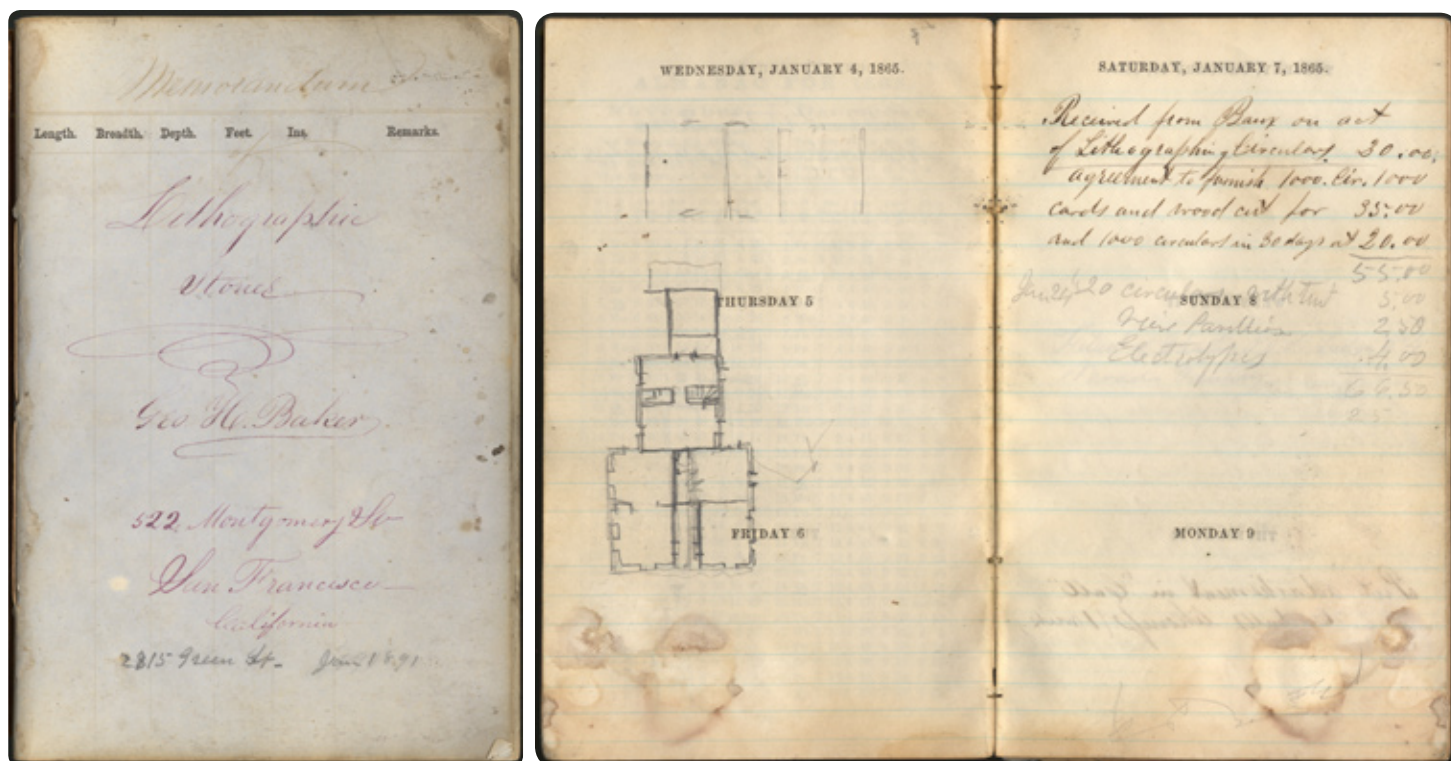 Memorandum
Length. Breadth. Depth. Feet. Ins. Remarks.
Lithographic
Stones
Geo H. Baker
522 Montgomery St
San Francisco
California
2815 Green St. Jan 1891
WEDNESDAY, JANUARY 4, 1865.
THURSDAY 5
FRIDAY 6
SATURDAY, JANUARY 7, 1865.
Received from Baux on act
of Lithographing Circulars 30.00.
agreement to furnish 1000. Cir. 1000
cards and wood cut for 35.00
and 1000 circulars in 30 days at 20.00
55.00
circulars with tint 5.00
SUNDAY 8
View Pavilion 2,50
Electrotypes 4.00
66.50
25
MONDAY 9